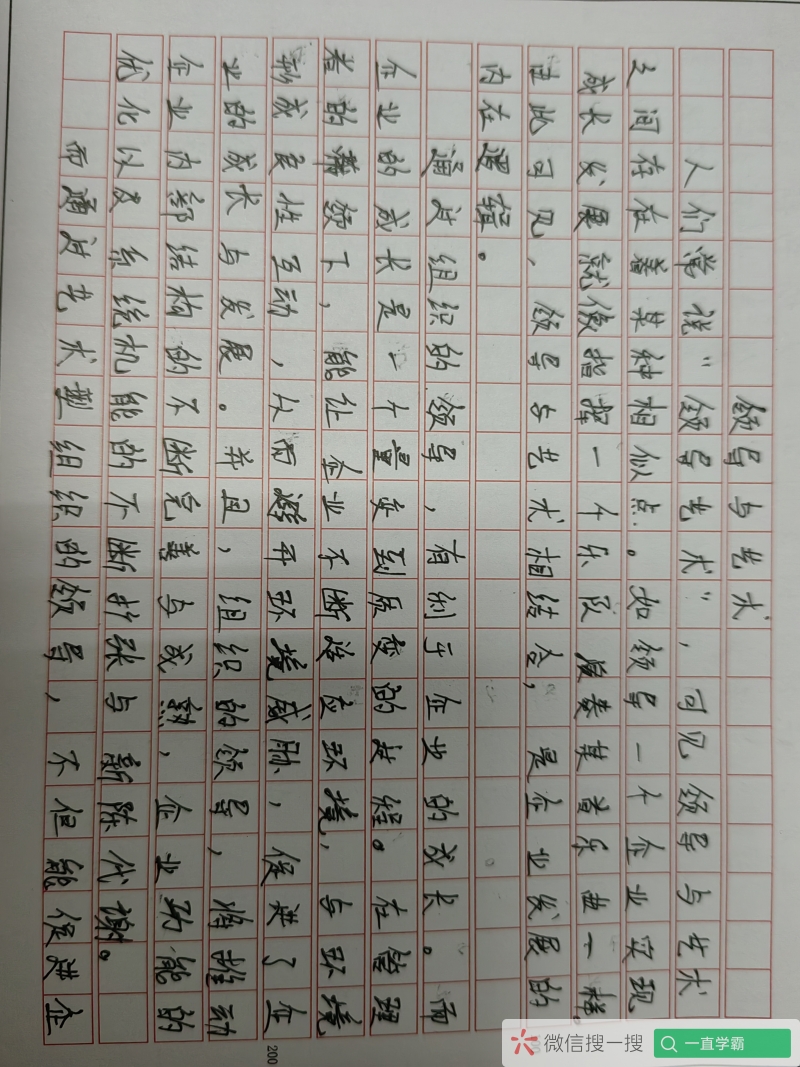 领导与艺术
人们常说“领导艺术”，可见领导与艺术
之间存在着某种相似点。如领导一个企业实现
成长发展就像指挥一个乐队演奏某首乐曲一样。
由此可见，领导与艺术相结合，是企业发展的
内在逻辑。
通过组织的领导，有利于企业的成长。而
企业的成长是一个量变到质变的过程。在管理
者的带领下，能让企业不断适应环境，与环境
形成良性互动，从而避开环境威胁，促进了企
业的成长与发展。并且，组织的领导，将推动
企业内部结构的不断完善与成熟，企业功能的
优化以及系统机能的不断扩张与新陈代谢。
而通过艺术型组织的领导，不但能促进企
200
微信搜一搜
一直学霸